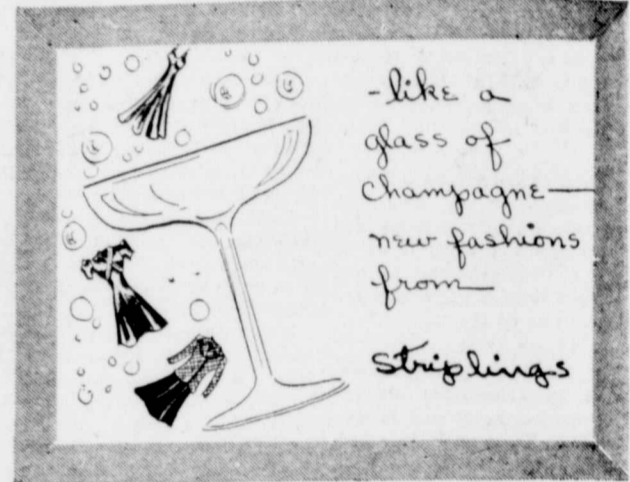 -like a
glass of
champagne—
new fashions
from—
striplings